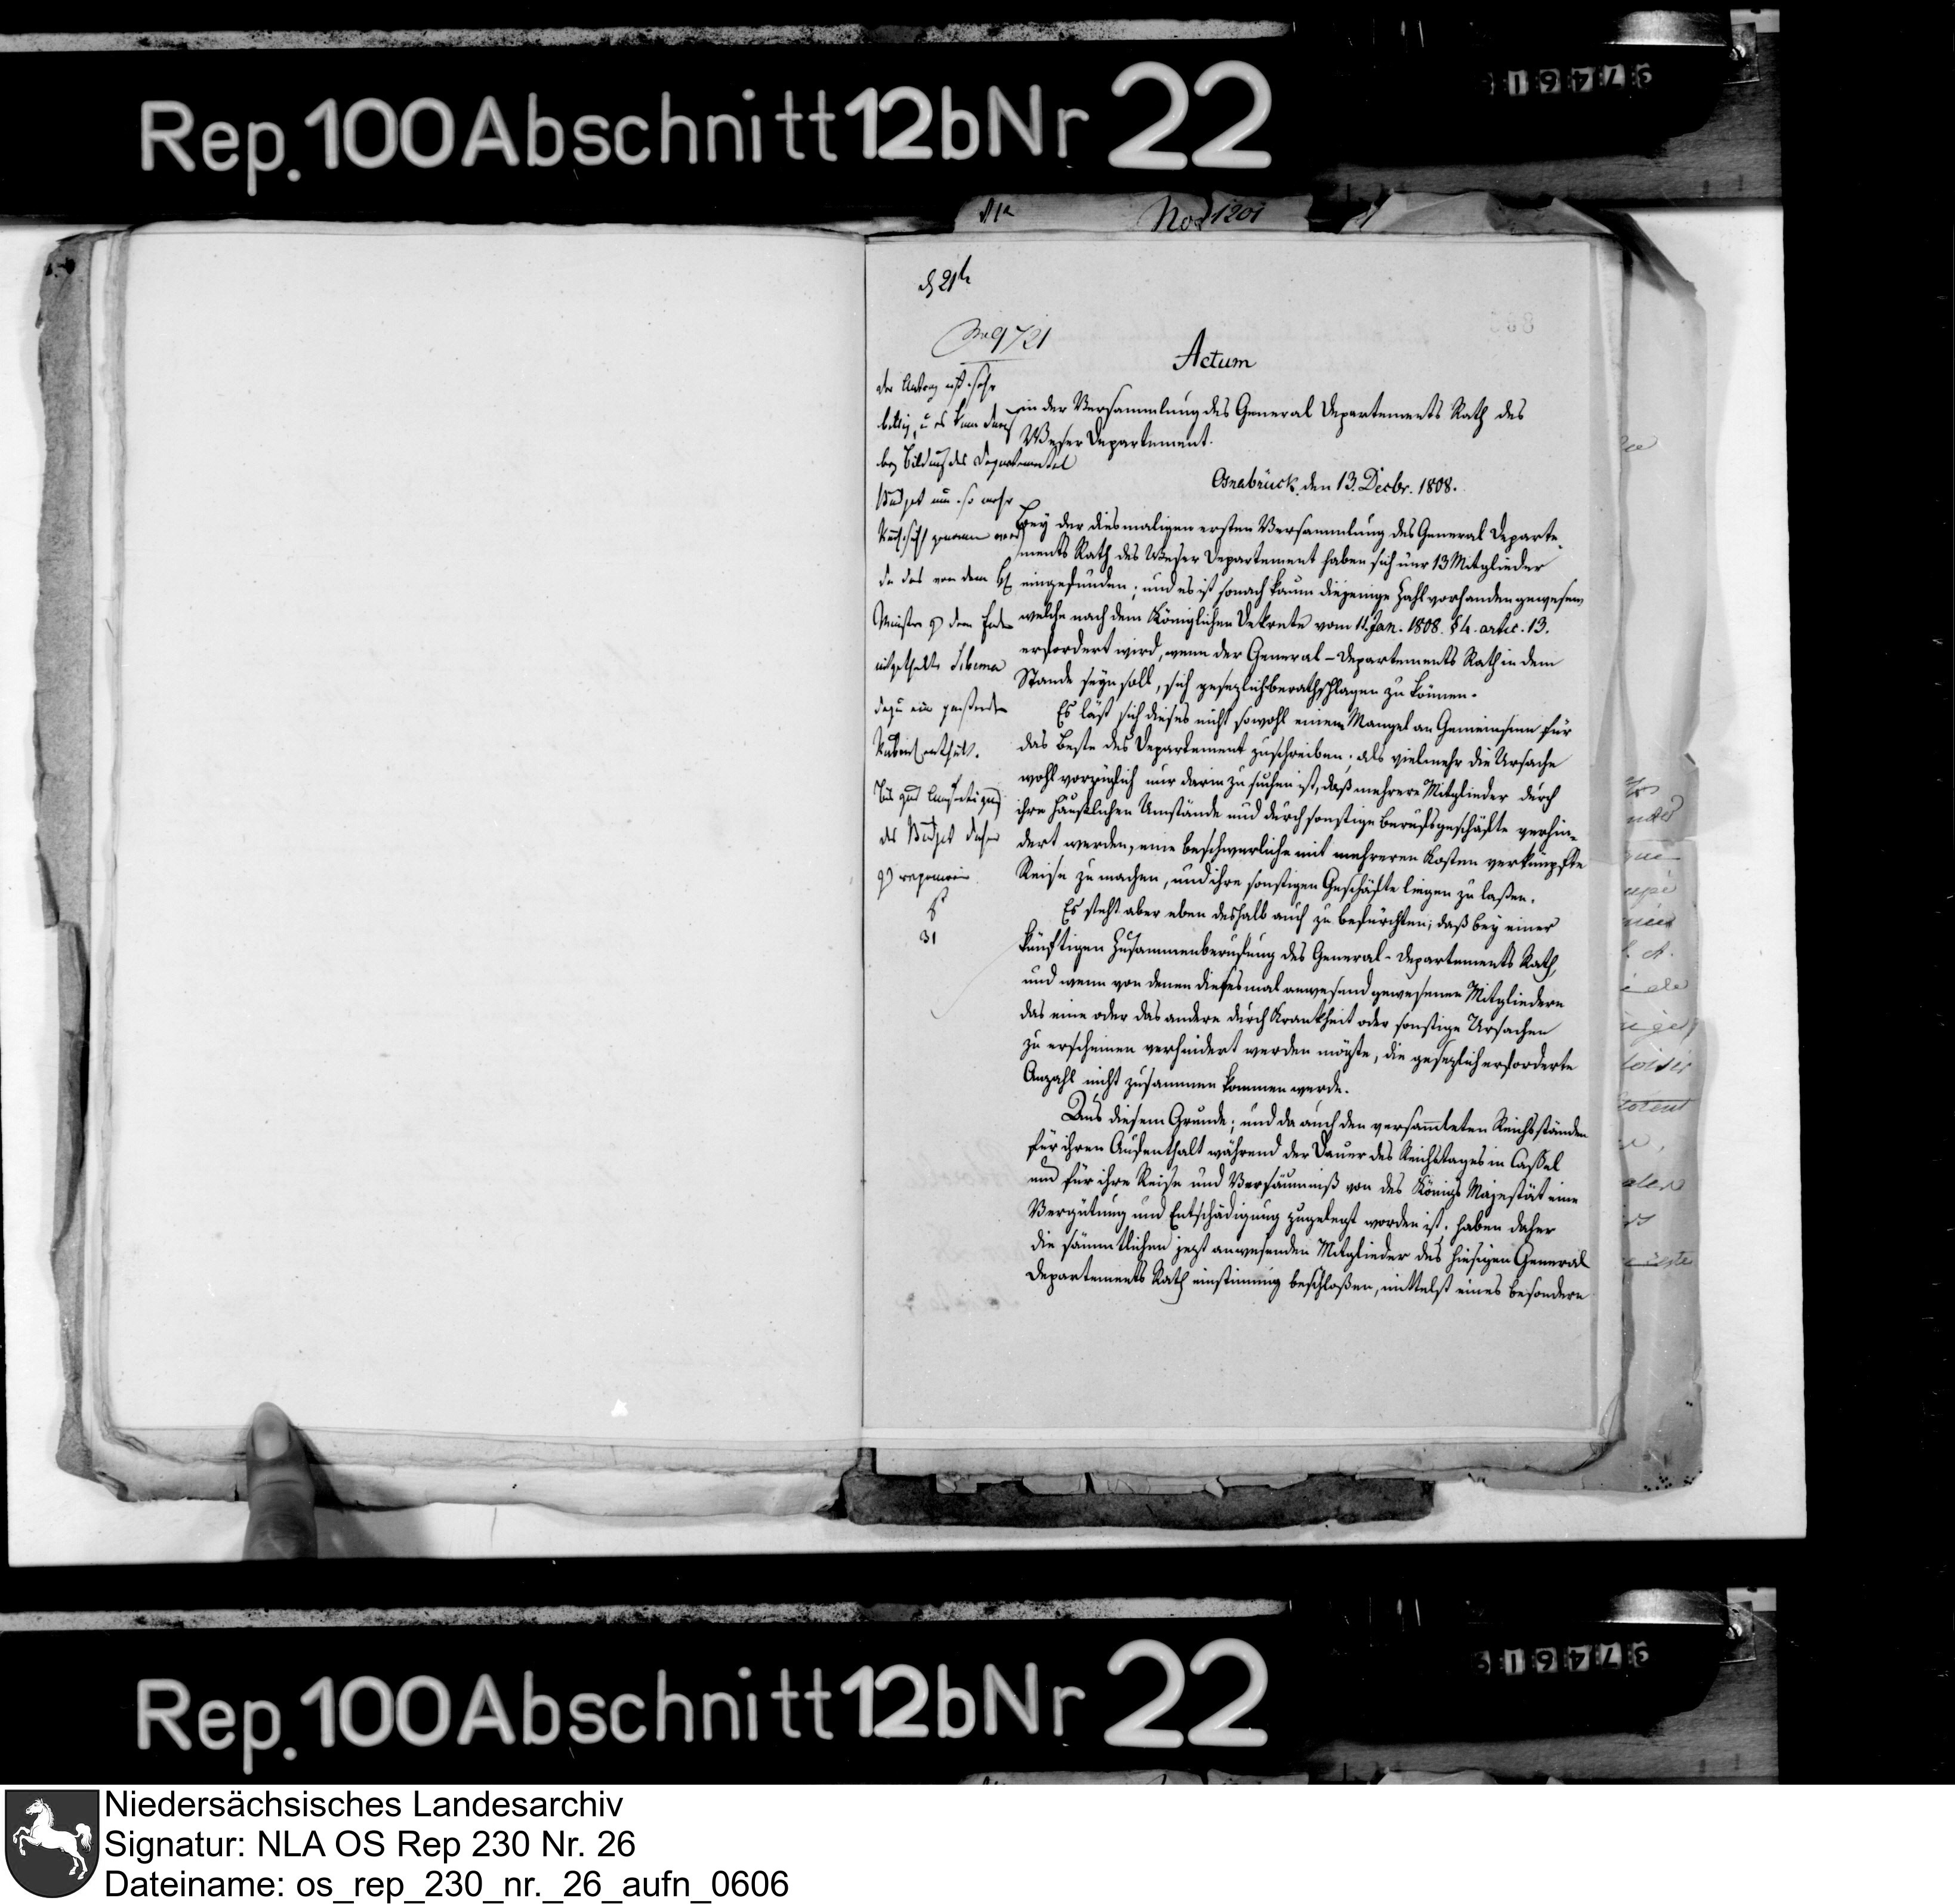 Rep. 100 Abschnitt 12b Nr 22
No 1201
No 9721
Actum
in der Versammlung des General Departements Rath des
Weser Departement.
Osnabrück, den 13. Decbr. 1808.
Bey der diesmaligen ersten Versammlung des General Departe-
ments Rath des Weser Departement haben sich nur 13 Mitglieder
eingefunden; und es ist sonach kaum diejenige Zahl vorhanden gewesen
welche nach dem Königlichen Dekrete vom 11. Jan. 1808. § 4. artic. 13.
erfordert wird, wenn der General-Departements Rath in dem
Stande seyn soll, sich gesezlich berathschlagen zu können.
Es läßt sich dieses nicht sowohl einem Mangel an Gemeinsinn für
das Beste des Departement zuschreiben; als vielmehr die Ursache
wohl vorzüglich nur darin zu suchen ist, daß mehrere Mitglieder durch
ihre häuslichen Umstände und durch sonstige Berufsgeschäfte verhin-
dert werden, eine beschwerliche mit mehreren Kosten verknüpfte
Reise zu machen, und ihre sonstigen Geschäfte liegen zu laßen.
Es steht aber eben deshalb auch zu befürchten, daß bey einer
künftigen Zusammenberufung des General-Departements Rath,
und wenn von denen diesesmal anwesend gewesenen Mitgliedern
das eine oder das andere durch Krankheit oder sonstige Ursachen
zu erscheinen verhindert werden mögte, die gesezlich erforderte
Anzahl nicht zusammen kommen werde.
Aus diesem Grunde; und da auch den versammleten Reichsständen
für ihren Aufenthalt während der Dauer des Reichstages in Cassel
und für ihre Reise und Versäumniß von des Königs Majestät eine
Vergütung und Entschädigung zugelegt worden ist, haben daher
die sämmtlichen jezt anwesenden Mitglieder des hiesigen General
Departements Rath einstimmig beschloßen, mittelst eines besondern
der Antrag ist sehr
billig, u es kann darauf
bey Bildung des Departemental
Budget um so mehr
Rücksicht genommen werd
da das von dem
Minister zu dem Ende
mitgetheilte Schema
dazu eine passende
Rubrik enthält.
des Budget daher
31
Rep. 100 Abschnitt 12b Nr 22
Niedersächsisches Landesarchiv
Signatur: NLA OS Rep 230 Nr. 26
Dateiname: os_rep_230_nr._26_aufn_0606